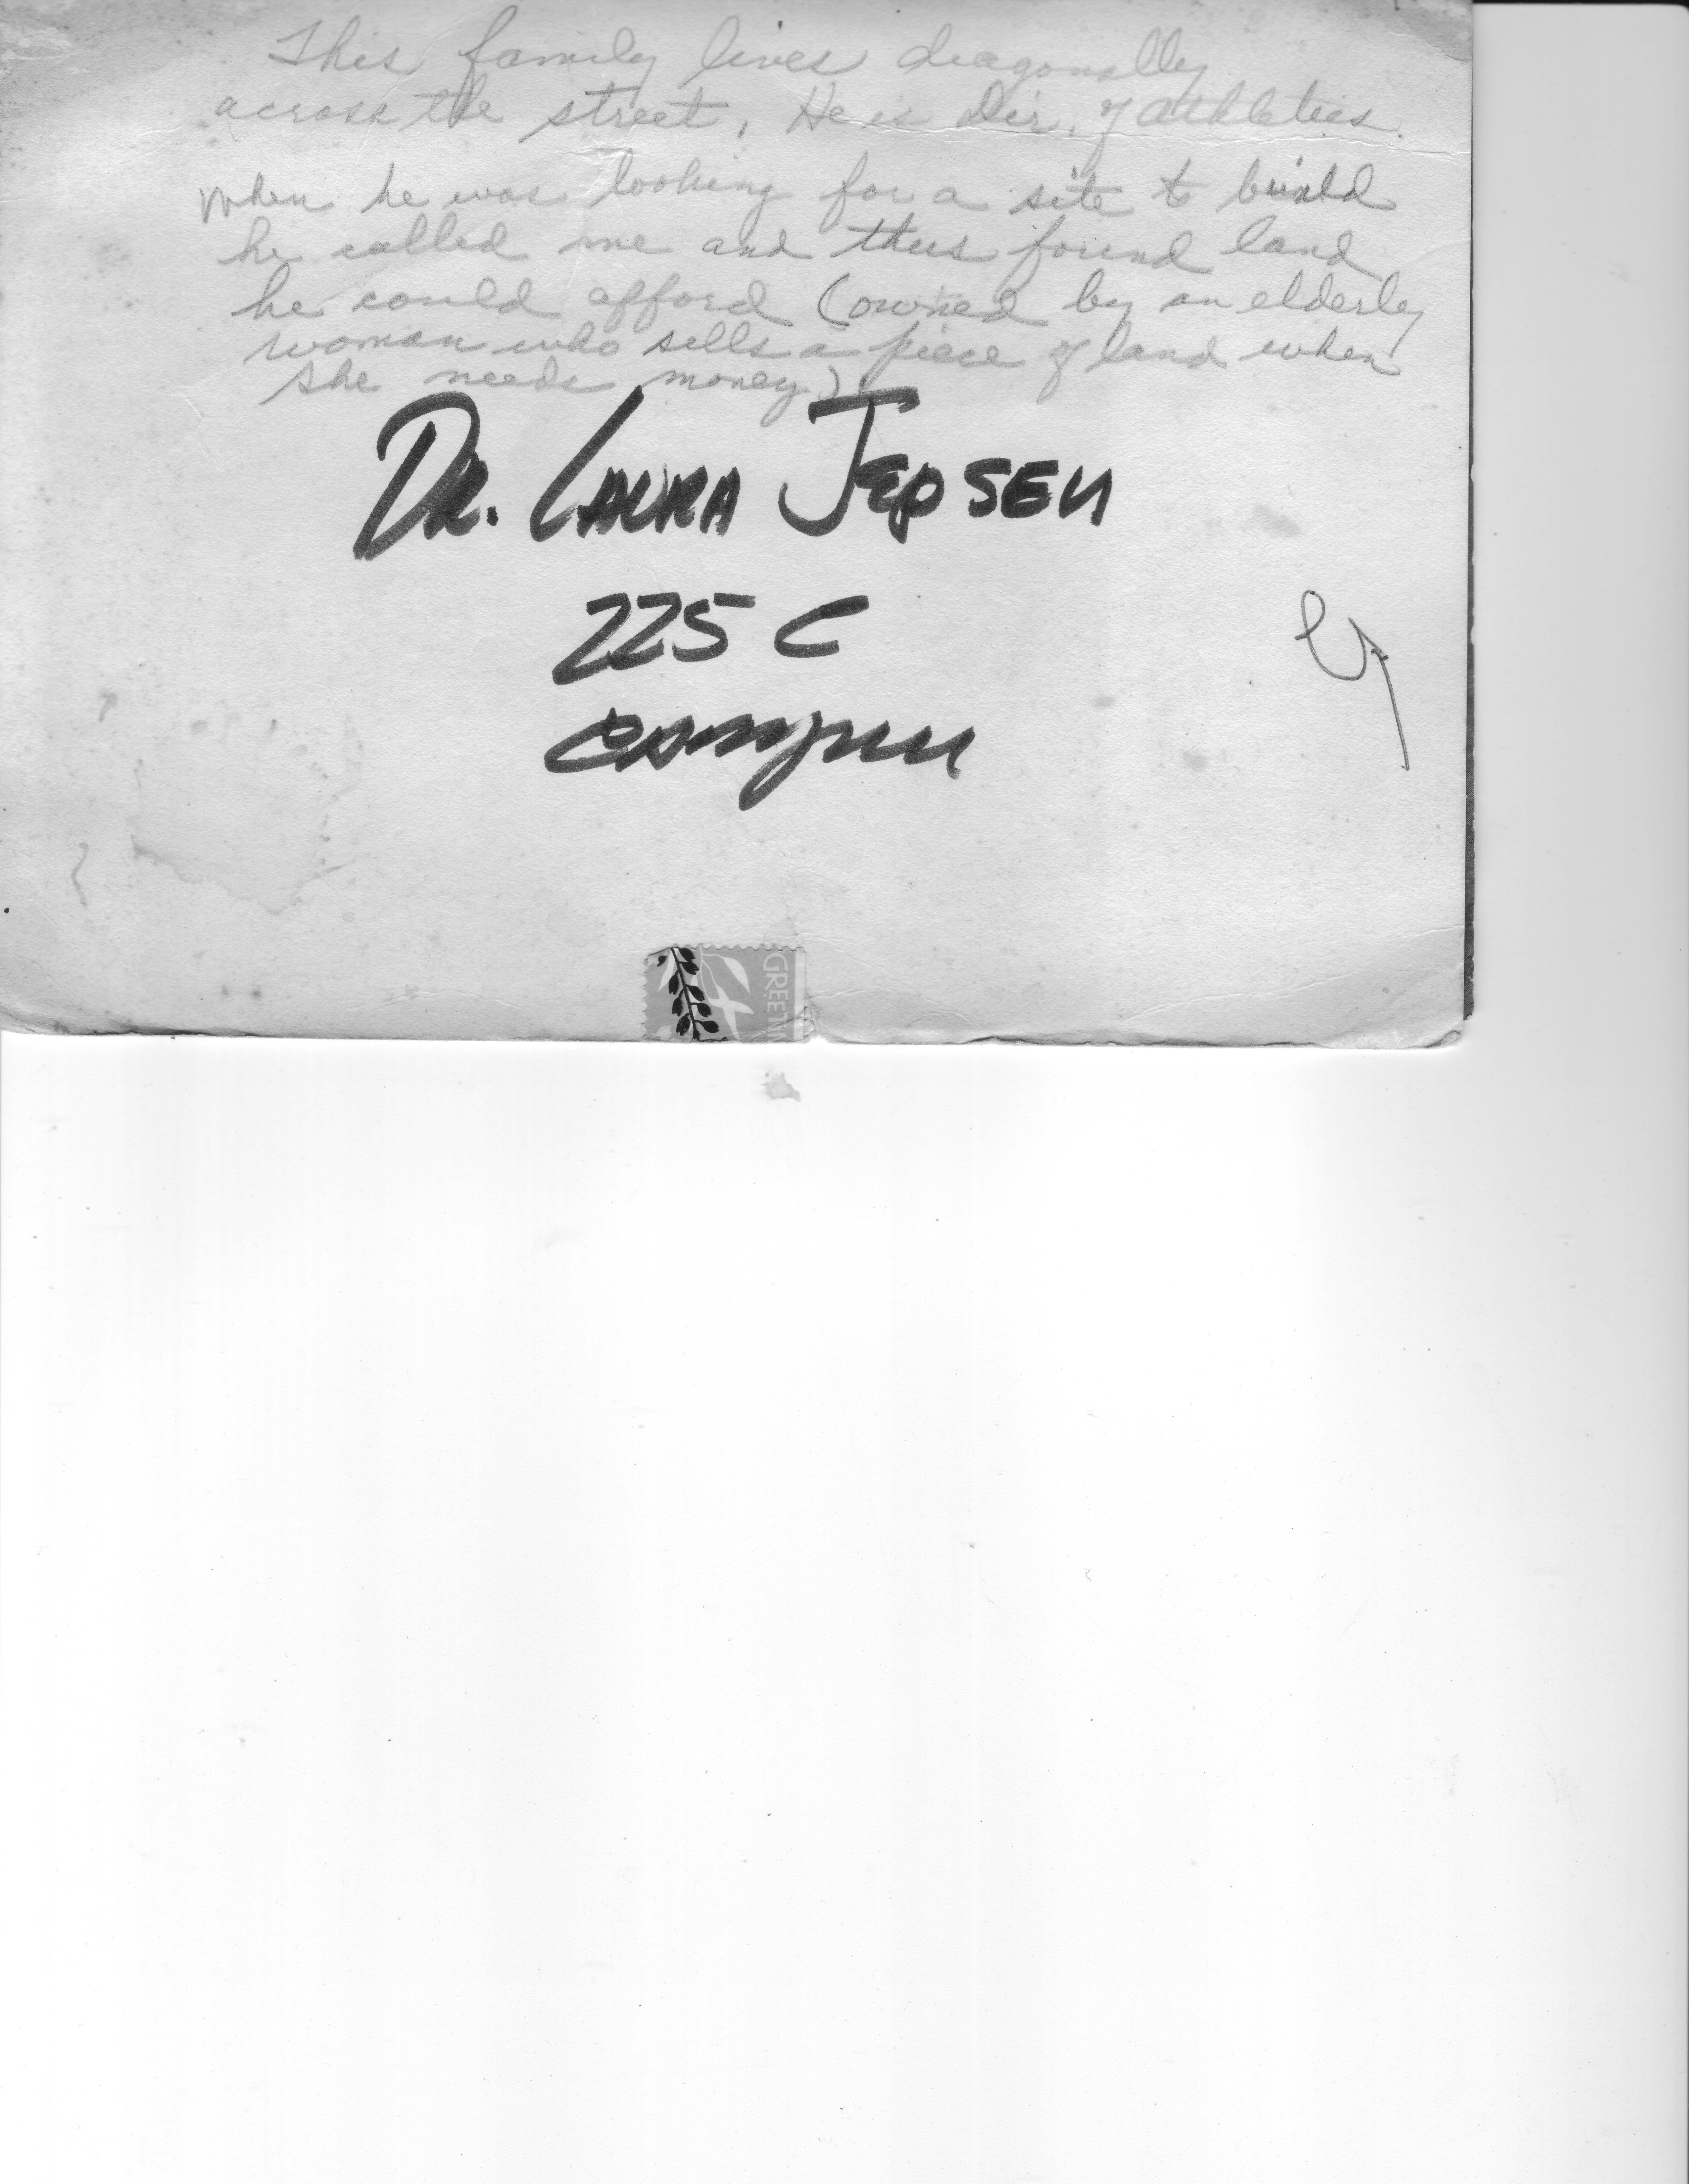 This family lives diagonally
across the street. He is Dir. of athletics.
When he was looking for a site to build
he called me and thus found land
he could afford (owned by an elderly
woman who sells a piece of land when
she needs money)
DR. LAURA JEPSEN
225 C
Campus
GREETIN